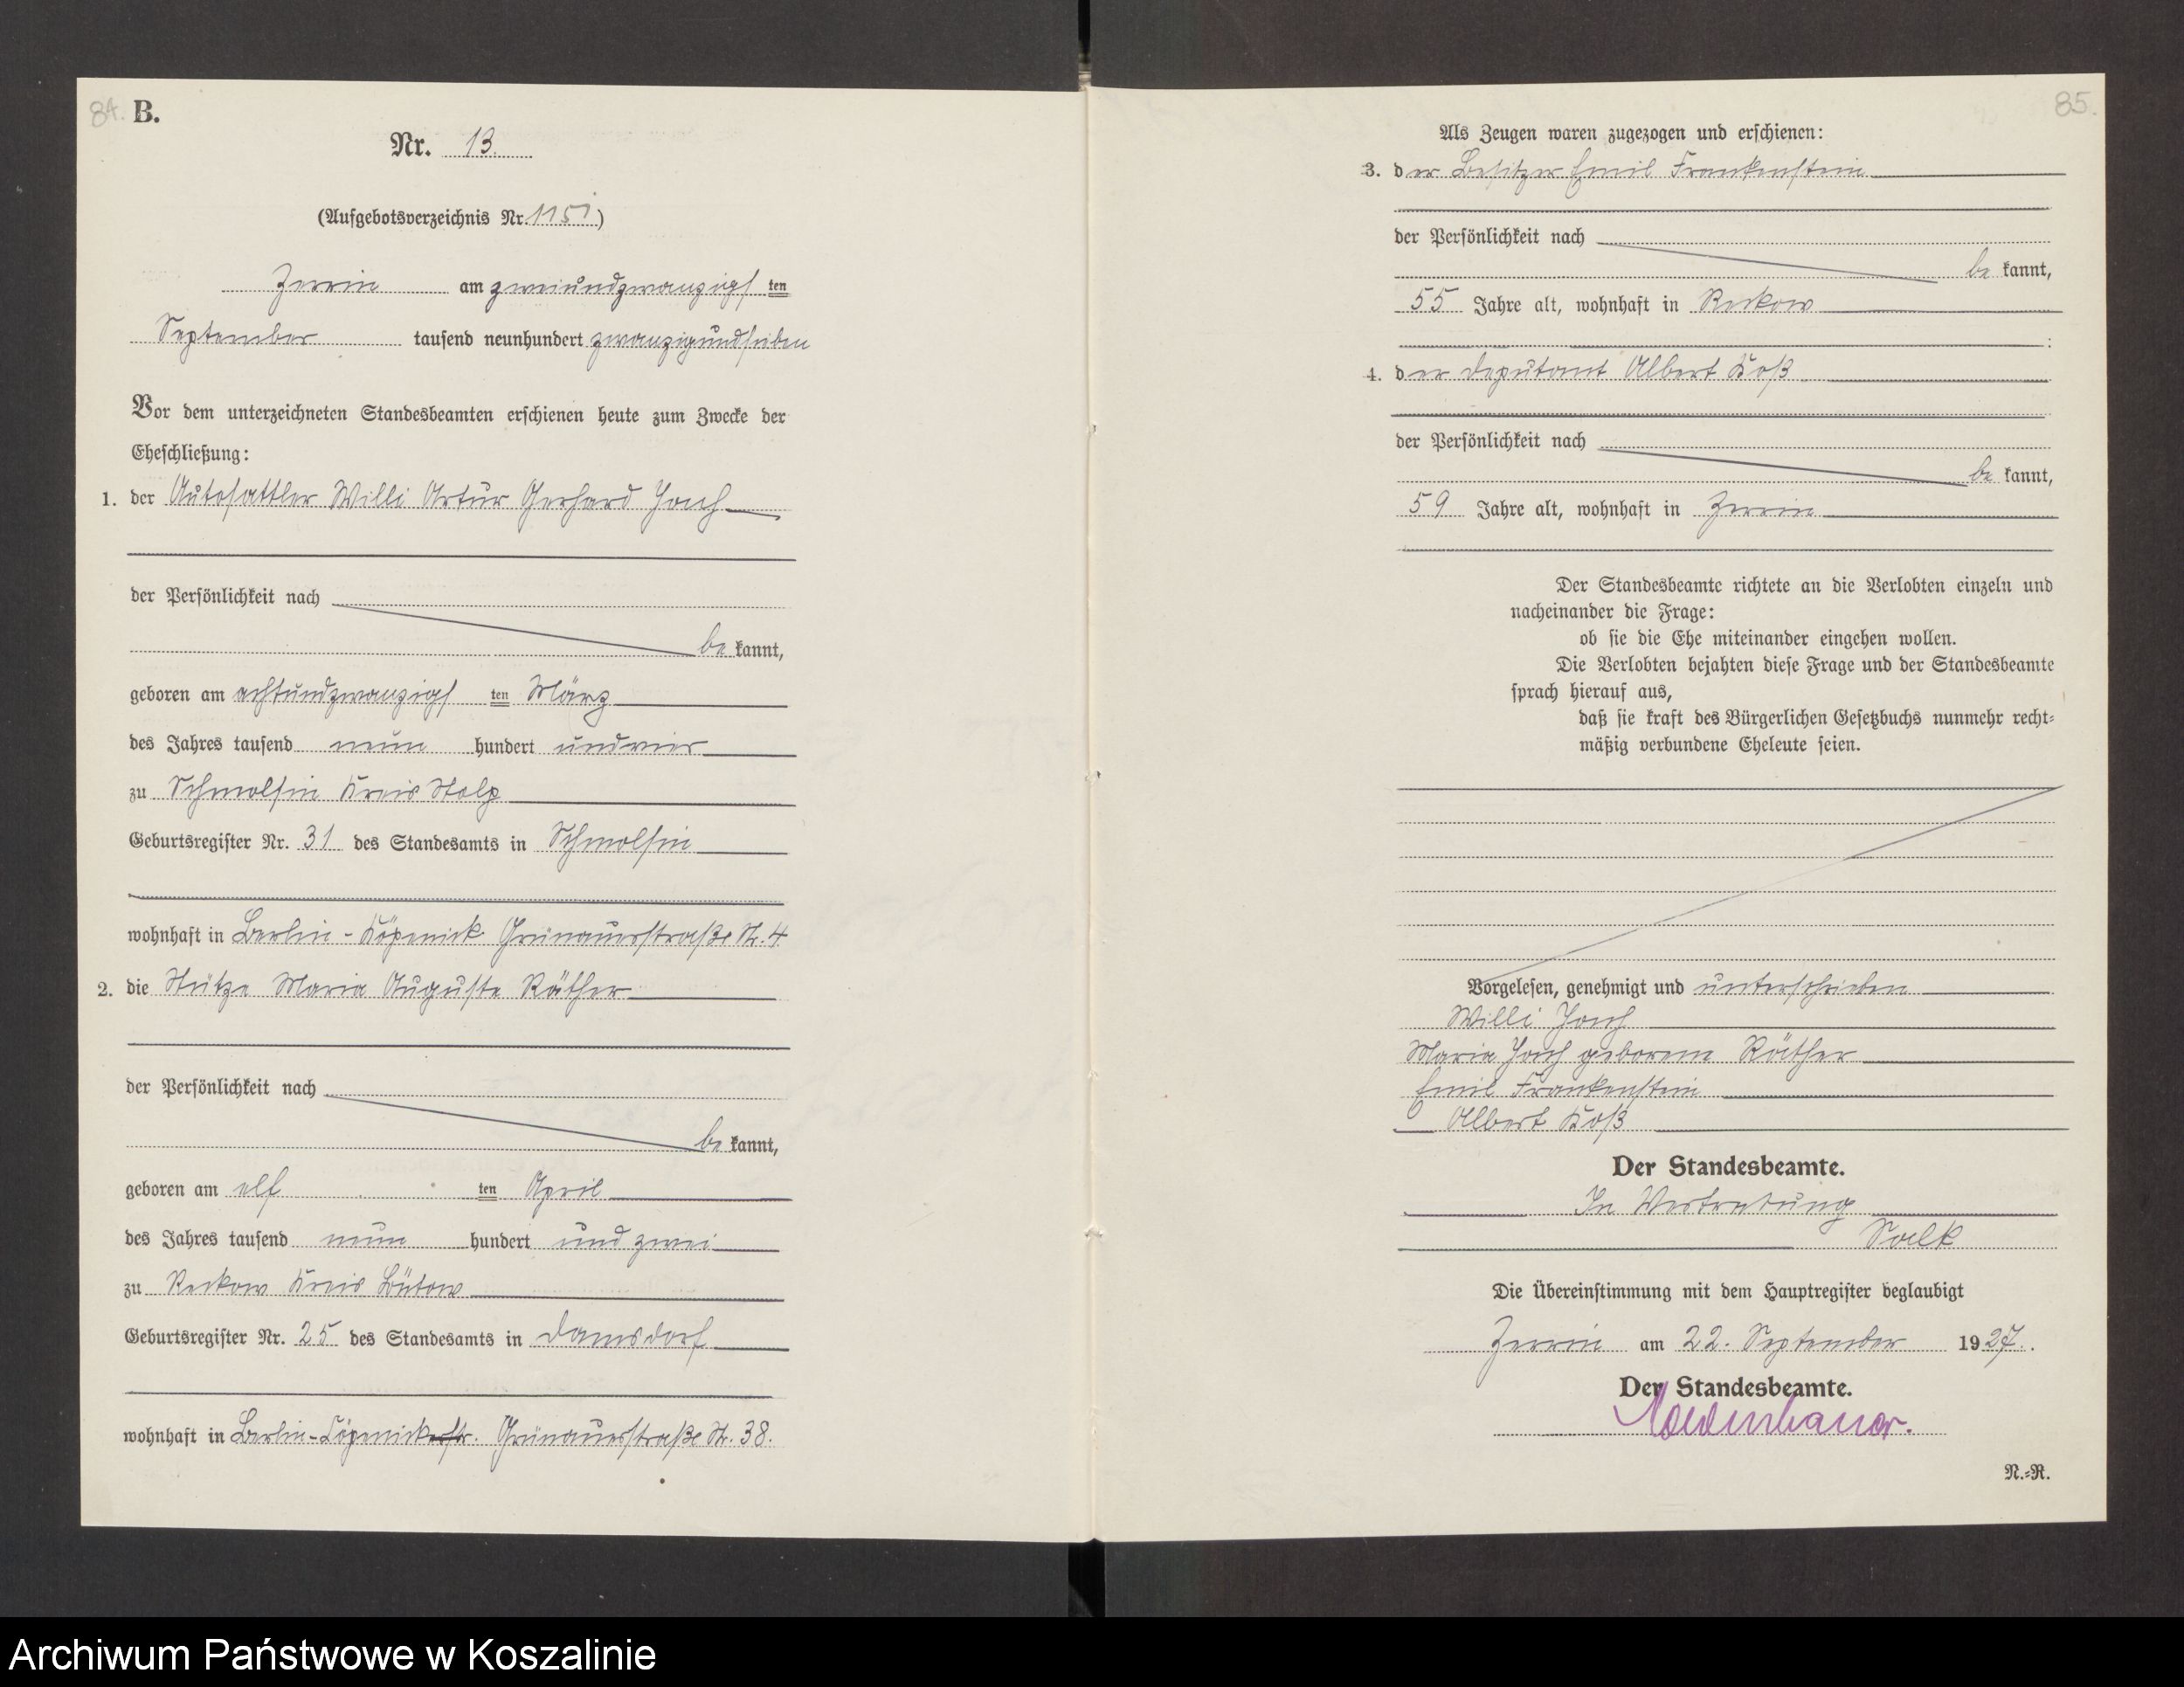 84.
B.
Nr. 13.
(Aufgebotsverzeichnis Nr. 1151)
Zerrin am zweiundzwanzigsten
September tausend neunhundert zwanzigundsieben
Vor dem unterzeichneten Standesbeamten erschienen heute zum Zwecke der
Eheschließung:
1. der Autosattler Willi Artur Gerhard
der Persönlichkeit nach
be kannt,
geboren am achtundzwanzigs ten März
des Jahres tausend neun hundert undvier
zu Schmolsin Kreis Stolp
Geburtsregister Nr. 31 des Standesamts in Schmolsin
wohnhaft in Berlin-Köpenick Grünauerstraße Nr. 4
2. die Stütze Maria Auguste Räther
der Persönlichkeit nach
be kannt,
geboren am elf ten April
des Jahres tausend neun hundert und zwei
zu Reckow Kreis Bütow
Geburtsregister Nr. 25 des Standesamts in Damsdorf
wohnhaft in Berlin-Cöpenick Grünauerstraße Nr. 38.
85.
Als Zeugen waren zugezogen und erschienen:
3. der Besitzer Emil Frankenstein
der Persönlichkeit nach
be kannt,
55 Jahre alt, wohnhaft in Reckow
;
4. der Deputant Albert Koß
der Persönlichkeit nach
be kannt,
59 Jahre alt, wohnhaft in Zerrin
Der Standesbeamte richtete an die Verlobten einzeln und
nacheinander die Frage:
ob sie die Ehe miteinander eingehen wollen.
Die Verlobten bejahten diese Frage und der Standesbeamte
sprach hierauf aus,
daß sie kraft des Bürgerlichen Gesetzbuchs nunmehr recht-
mäßig verbundene Eheleute seien.
Vorgelesen, genehmigt und unterschrieben
Willi
Maria geborene Räther
Emil Frankenstein
Albert Koß
Der Standesbeamte.
In Vertretung
Die Übereinstimmung mit dem Hauptregister beglaubigt
Zerrin am 22. September 1927.
Der Standesbeamte.
N.-R.
Archiwum Państwowe w Koszalinie